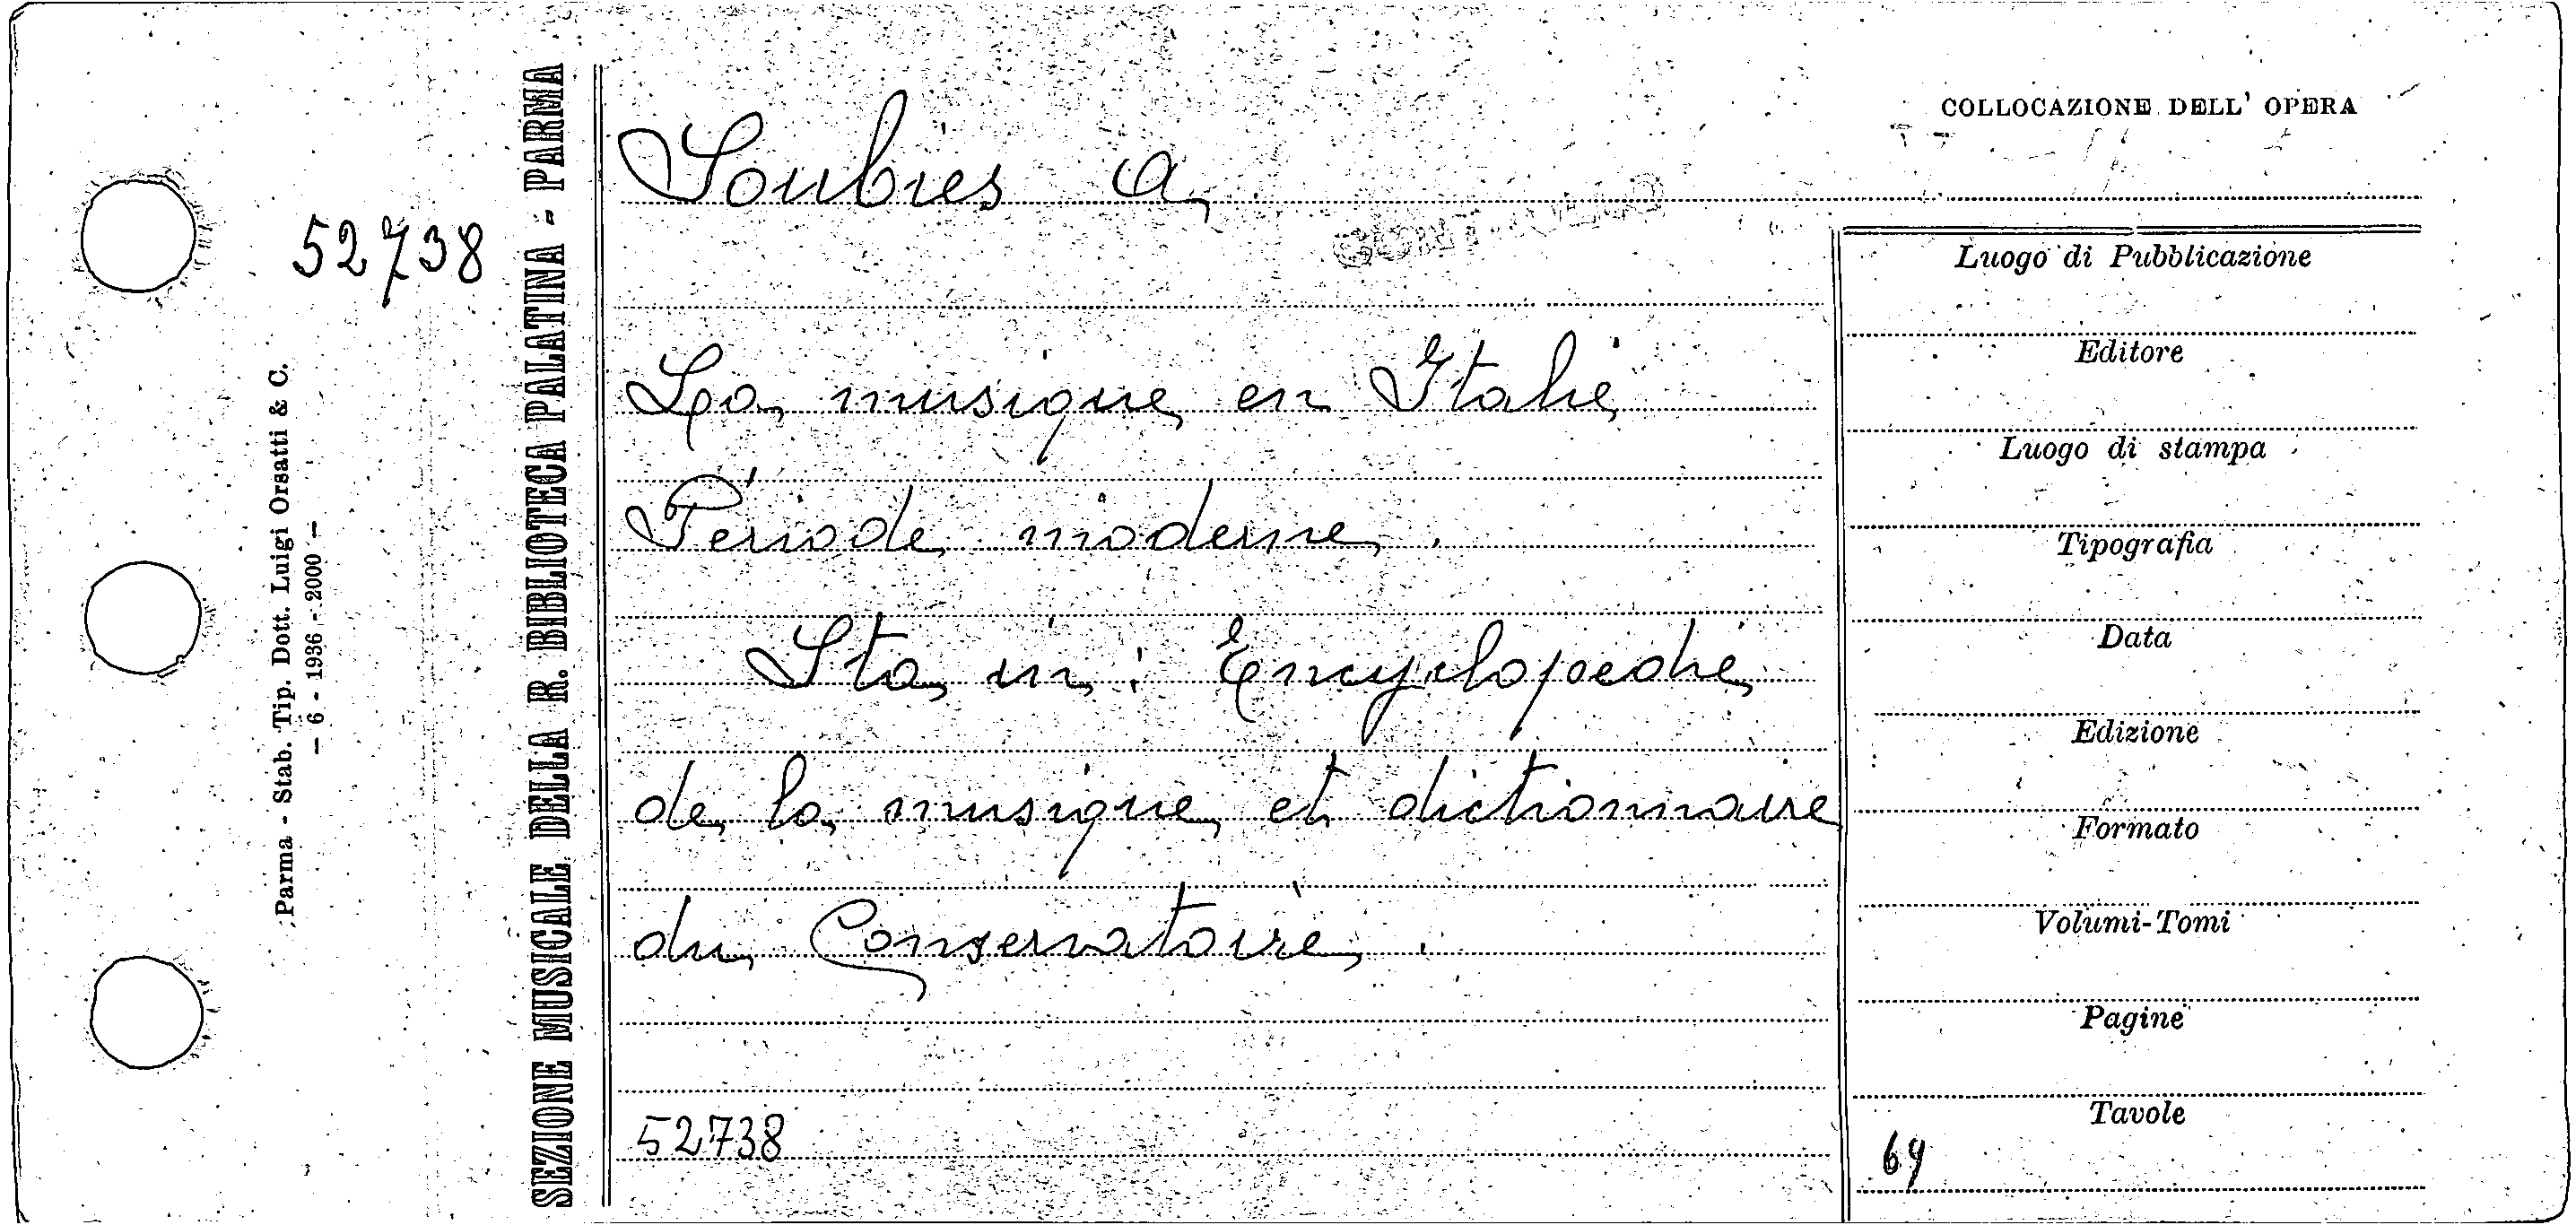 COLLOCAZIONE DELL' OPERA
Soubies A.
52738
La musique en Italie
Période moderne.
Sta in: Encyclopedie
de la musique et dictionnaire
du Conservatoire.
52738
Luogo di Pubblicazione
Editore
Luogo di stampa
Tipografia
Data
Edizione
Formato
Volumi-Tomi
Pagine
Tavole
69
SEZIONE MUSICALE DELLA R. BIBLIOTECA PALATINA - PARMA
Parma - Stab. Tip. Dott. Luigi Orsati & C.
- 6 - 1936 - 2000 -